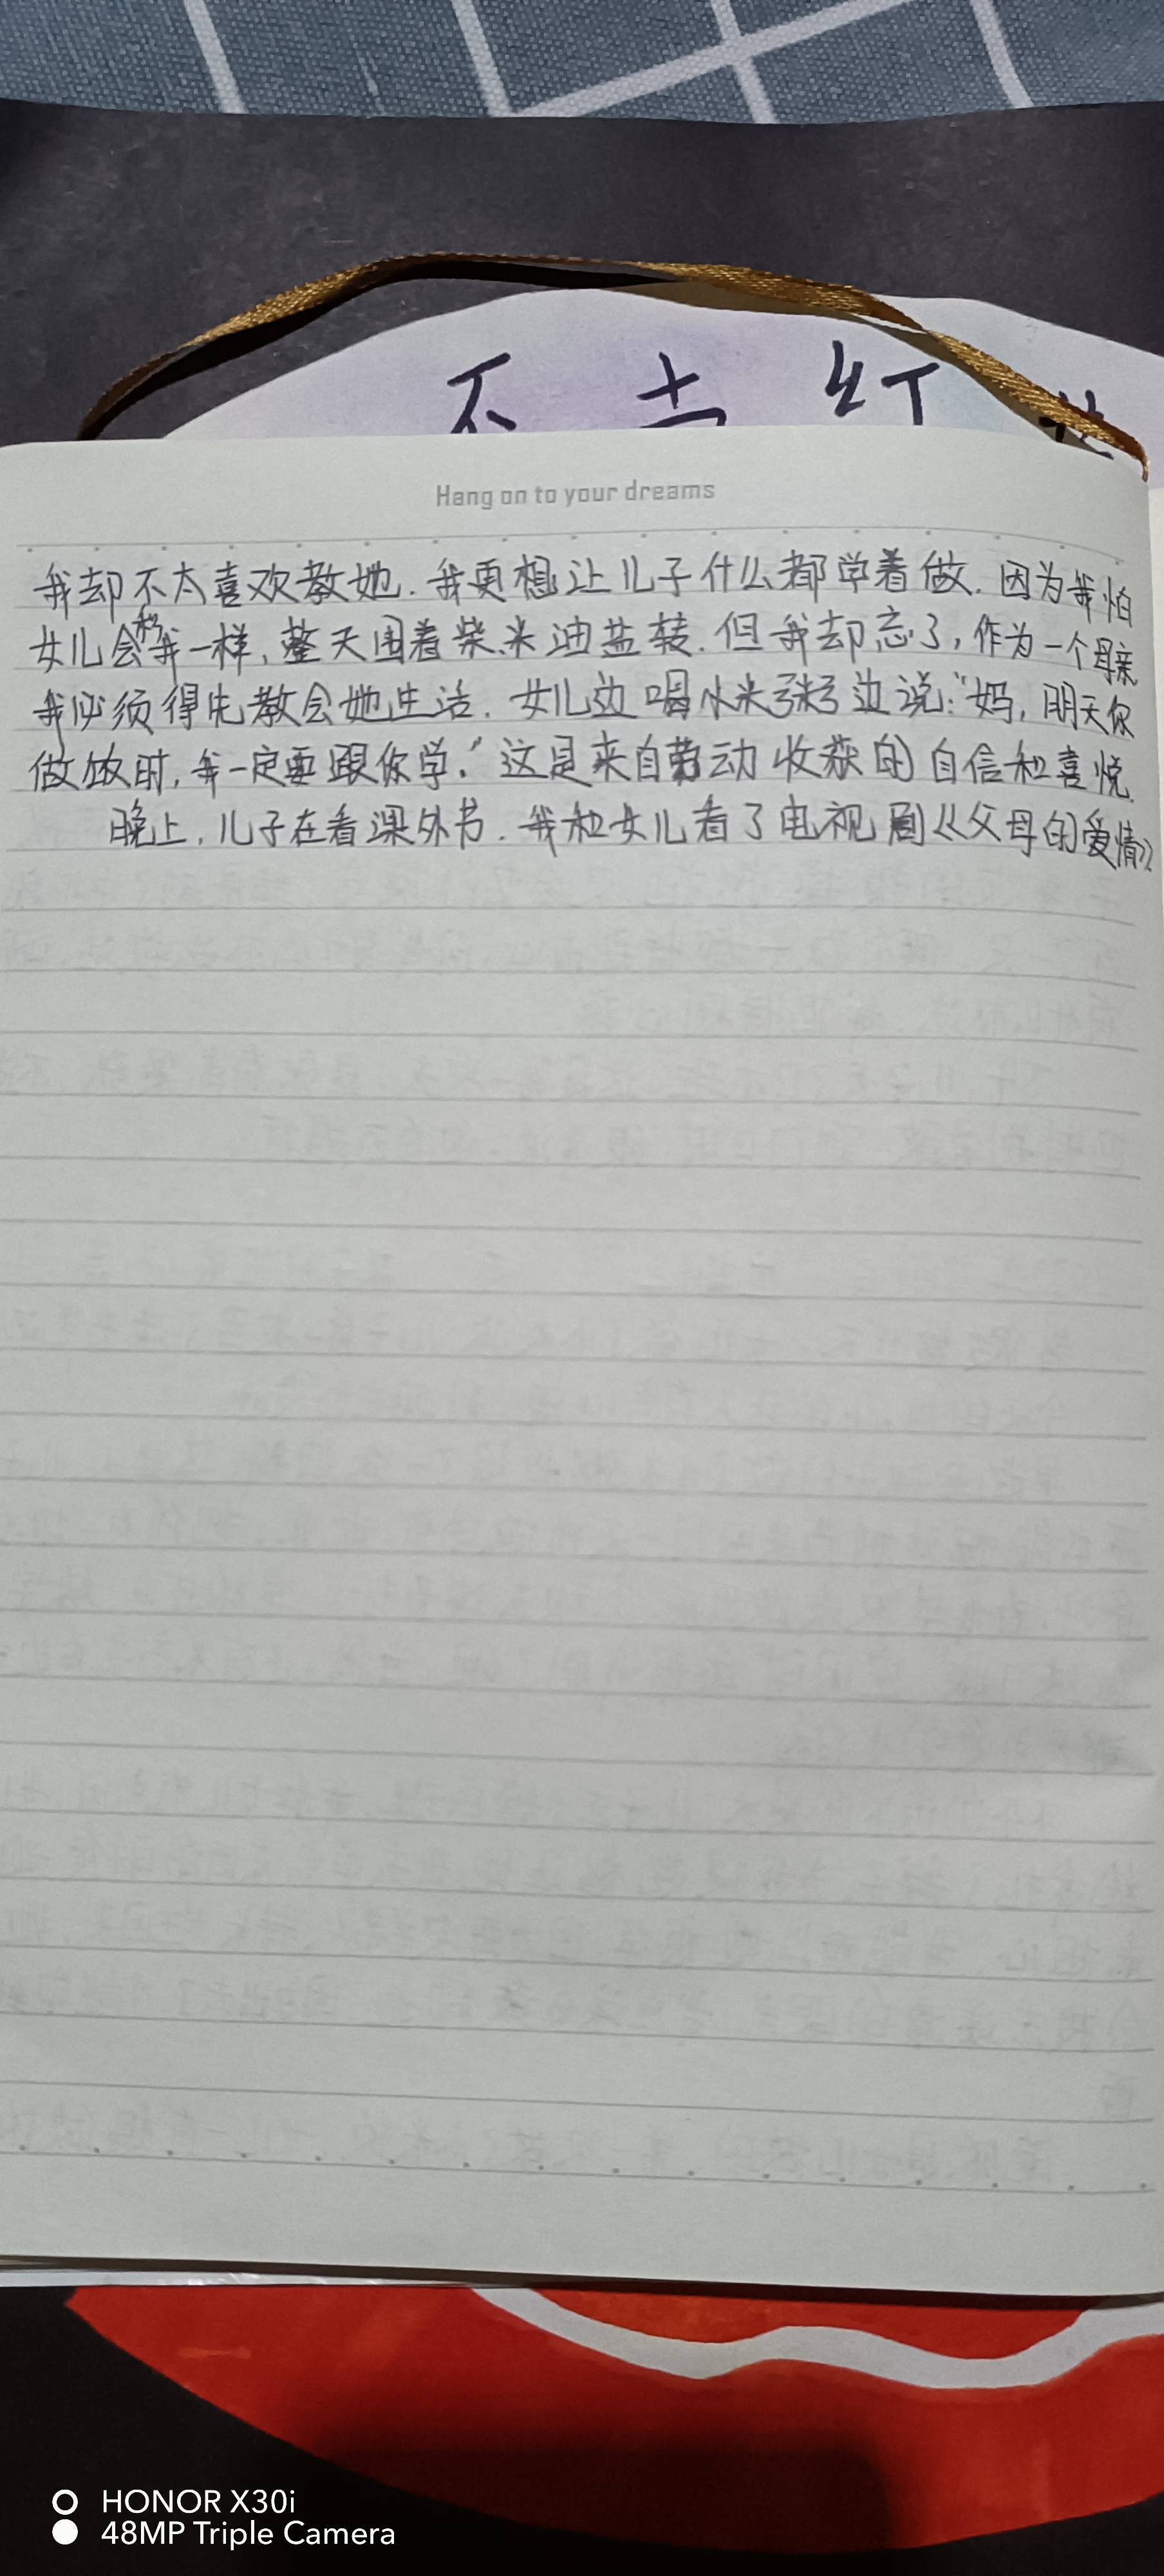 不 去 红
Hang on to your dreams
我却不太喜欢教她.我更想让儿子什么都学着做.因为我怕
女儿会和我一样,整天围着柴米油盐转.但我却忘了,作为一个母亲
我必须得先教会她生活.女儿边喝小米粥边说:"妈,明天你
做饭时,我一定要跟你学."这是来自劳动收获的自信和喜悦.
晚上,儿子在看课外书.我和女儿看了电视剧《父母的爱情》
HONOR X30i
48MP Triple Camera